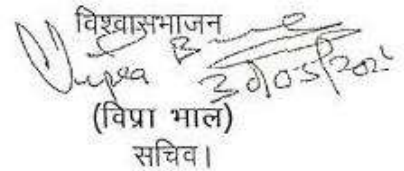 विश्वासभाजन
Vipra
30/05/2025
(विप्रा भाल)
सचिव।